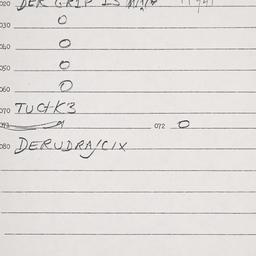 020 DER GRIP IS
030 0
040 0
050 0
060 0
070 TUCHK3
072 0
080 DERUDRA/CIX